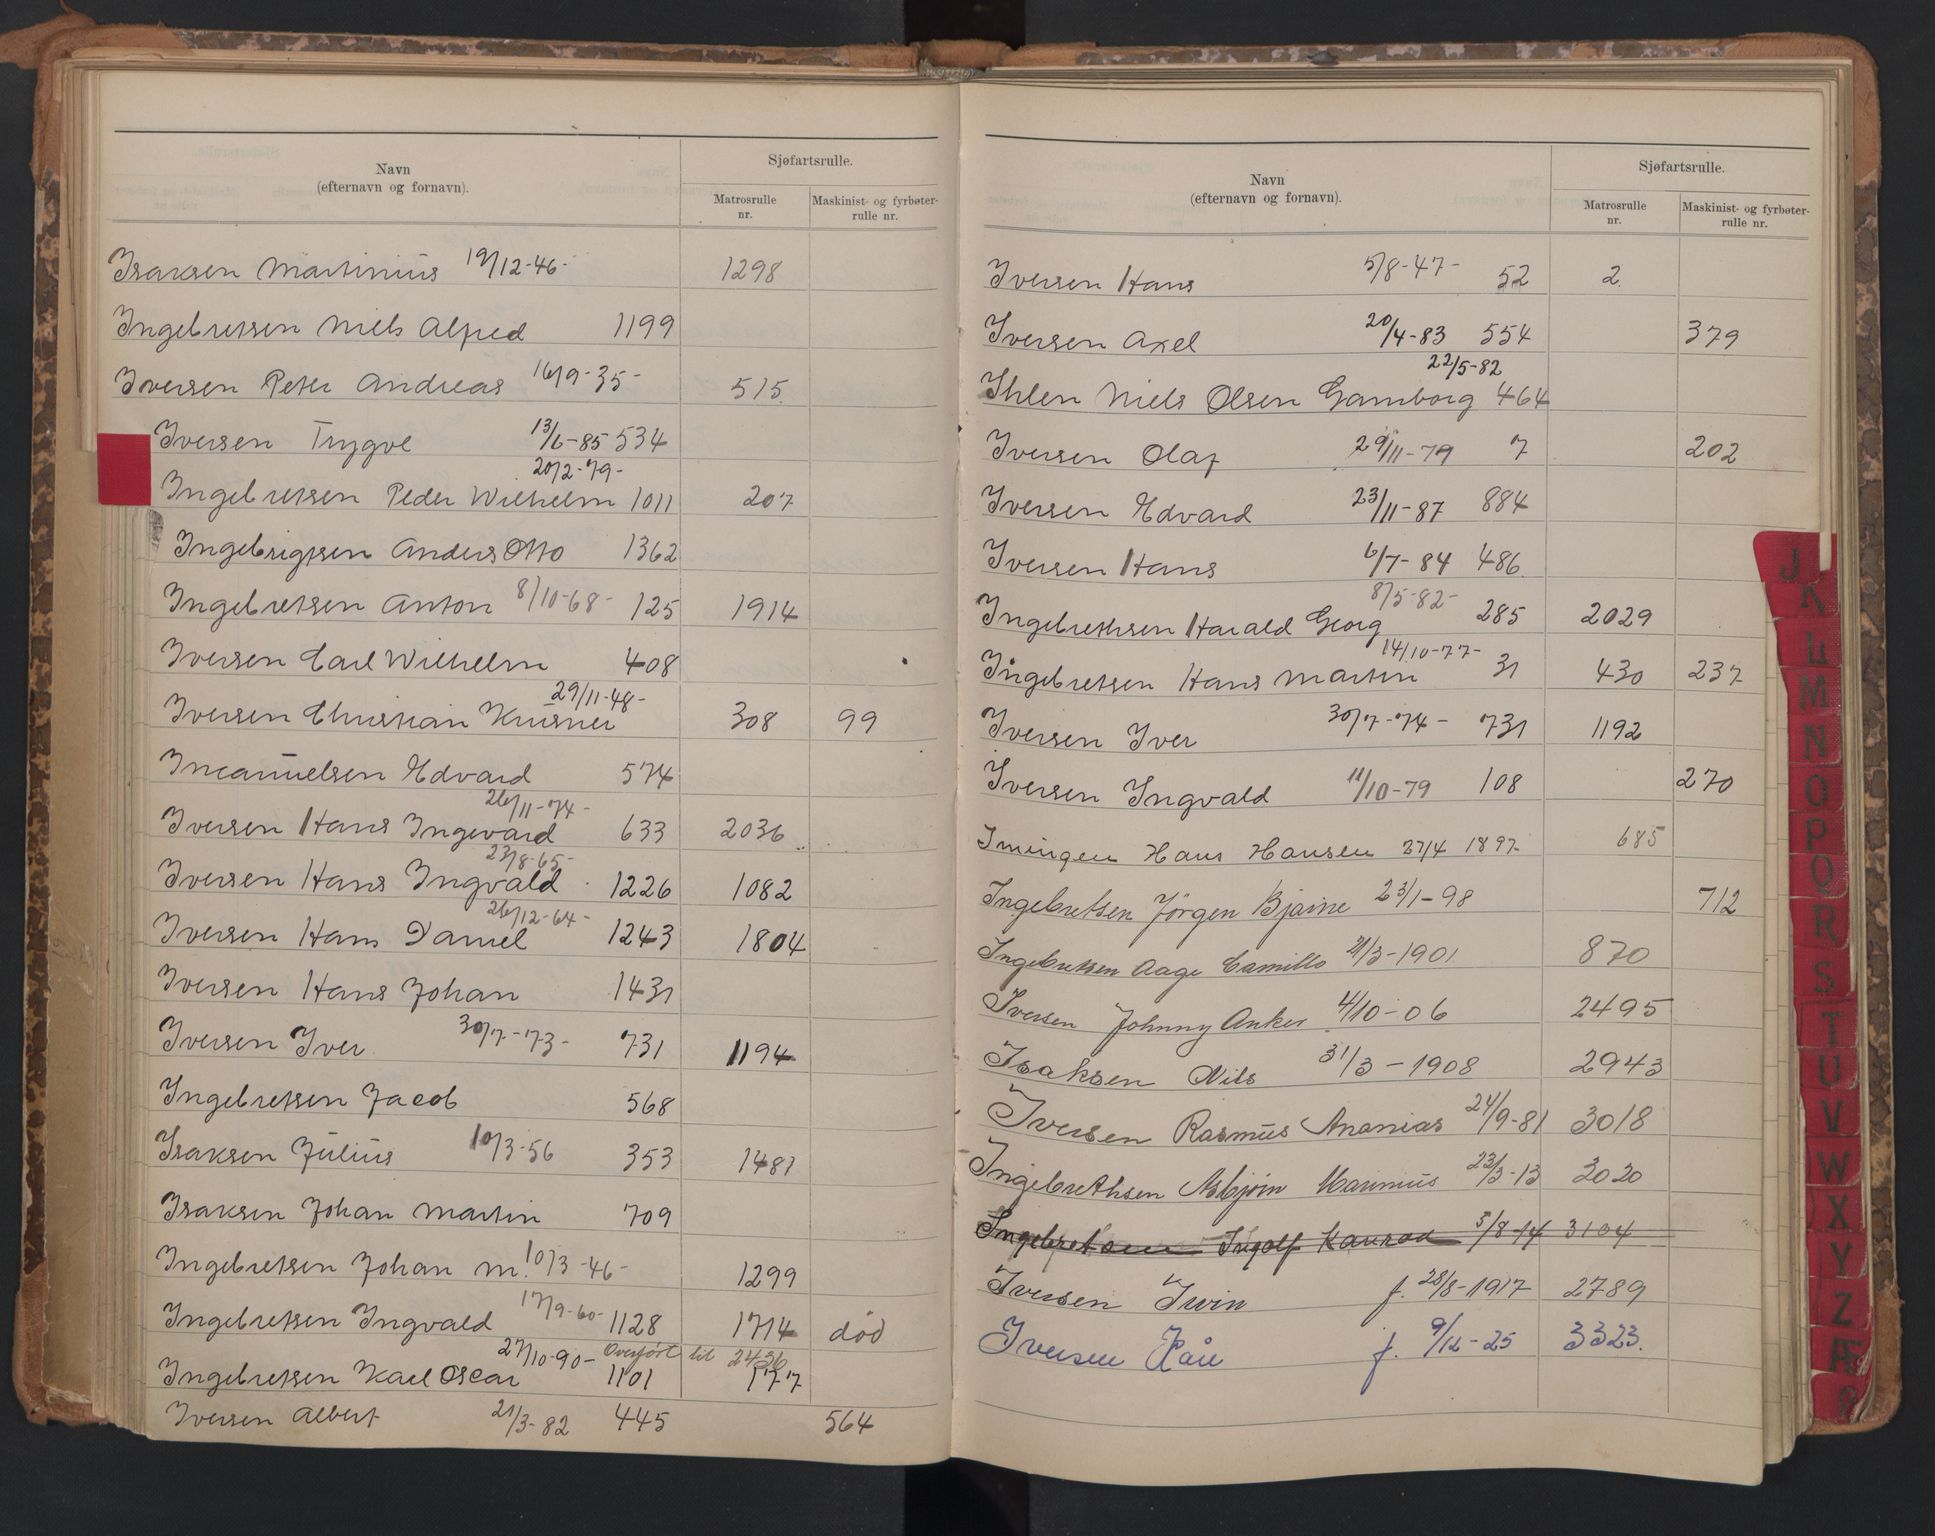 Navn
(efternavn og fornavn).
Sjøfartsrulle.
Matrosrulle
nr.
Maskinist- og fyrbøter-
rulle nr.
Isaksen Martinius 19/12-46- 1298
Ingebretsen Niels Alfred 1199
Iversen Peter Andreas 16/9-35- 515
Iversen Trygve 13/6-85 534
Ingebretsen Peder Wilhelm 20/2-79- 1011 207
Ingebrigtsen Anders Otto 1362
Ingebretsen Anton 8/10-68- 125 1914
Iversen Carl Wilhelm 408
Iversen Christian 29/11-48- 308 99
Edvard 574
Iversen Hans Ingevard 26/11-74- 633 2036
Iversen Hans Ingvald 23/8-65- 1226 1082
Iversen Hans Daniel 26/12-64- 1243 1804
Iversen Hans Johan 1431
Iversen Iver 30/7-73- 731 1194
Ingebretsen Jacob 568
Isaksen Julius 10/3-56 353 1481
Isaksen Johan Martin 709
Ingebretsen Johan M. 10/3-46- 1299
Ingebretsen Ingvald 17/9-60- 1128 1714 død
Ingebretsen Karl Oscar 27/10-90- Overført til 2436 1101 177
Iversen Albert 21/3-82 445 564
Navn
(efternavn og fornavn).
Sjøfartsrulle.
Matrosrulle
nr.
Maskinist- og fyrbøter-
rulle nr.
Iversen Hans 5/8-47- 52 2
Iversen Axel 20/4-83 554 379
Ihlen Niels Olsen Gamborg 22/5-82 464
Iversen Olaf 29/11-79 7 202
Iversen Edvard 23/11-87 884
Iversen Hans 6/7-84 486
Ingebrethsen Harald Georg 8/5-82- 285 2029
Ingebretsen Hans Martin 14/10-77- 31 430 237
Iversen Iver 30/7-74- 731 1192
Iversen Ingvald 11/10-79 108 270
Imingen Hans Hansen 27/4 1897 685
Ingebretsen Jörgen Bjarne 23/1-98 712
Ingebretsen Aage Camillo 21/3-1901 870
Iversen Johnny Anker 4/10-06 2495
Isaksen Nils 31/3-1908 2943
Iversen Rasmus Ananias 24/9-81 3018
Ingebrethsen Asbjørn Marinius 23/3-13 3020
Ingebretsen Ingolf Konrad 5/8-14 3104
Iversen Irvin f. 28/8-1917 2789
Iversen Kåre f. 9/12-25 3323.
J
K
L
M
N
O
P
Q
R
S
T
U
V
W
X
Y
Z
Æ
Ø